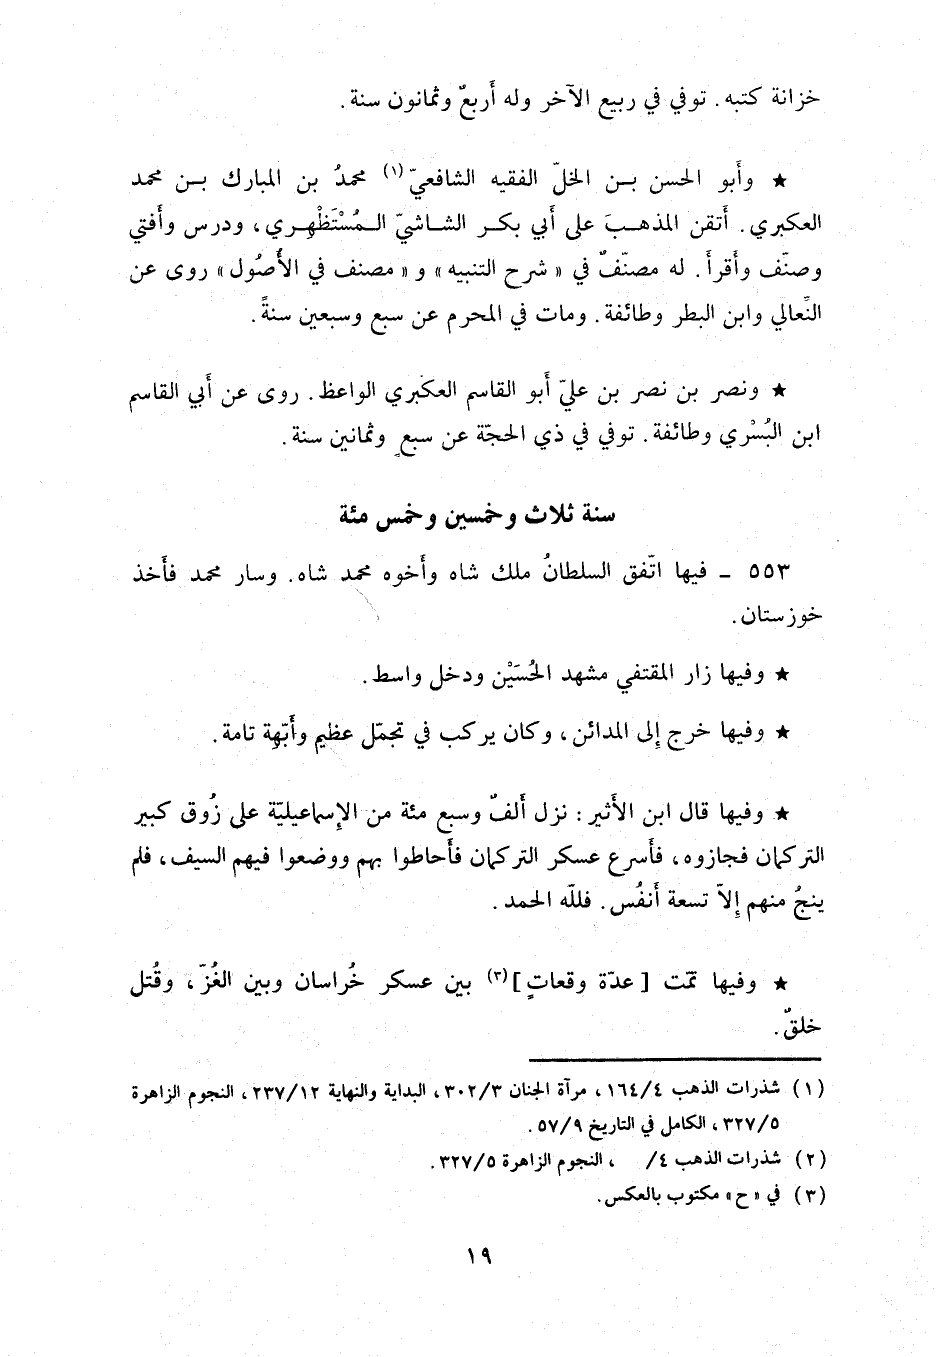 خزانة كتبه. توفي في ربيع الآخر وله أربعٌ وثمانون سنة.
★ وأبو الحسن بـن الخلّ الفقيه الشافعيّ(١) محمدُ بن المبارك بـن محمد
العكبري. أتقن المذهـبَ على أبي بكـر الشـاشيّ الـمُسْتَظْهِـري، ودرس وأفتي
وصنّف وأقرأ. له مصنّفٌ في « شرح التنبيه » و « مصنف في الأصُول » روى عن
النِّعالي وابن البطر وطائفة. ومات في المحرم عن سبع وسبعين سنةً.
★ ونصر بن نصر بن عليّ أبو القاسم العكبري الواعظ. روى عن أبي القاسم
ابن البُسْري وطائفة. توفي في ذي الحجّة عن سبعٍ وثمانين سنة.
سنة ثلاث وخمسين وخمس مئة
٥٥٣ ـ فيها اتّفق السلطانُ ملك شاه وأخوه محمد شاه. وسار محمد فأخذ
خوزستان.
★ وفيها زار المقتفي مشهد الحُسَيْن ودخل واسط.
★ وفيها خرج إلى المدائن، وكان يركب في تجمّل عظيم وأبّهة تامة.
★ وفيها قال ابن الأثير: نزل ألفٌ وسبع مئة من الإسماعيليّة على زُوق كبير
التركمان فجازوه، فأسرع عسكر التركمان فأحاطوا بهم ووضعوا فيهم السيف، فلم
ينجُ منهم إلاّ تسعة أنفُس. فللّه الحمد.
★ وفيها تمّت [ عدّة وقعاتٍ ](٣) بين عسكر خُراسان وبين الغُزّ، وقُتل
خلقٌ.
(١) شذرات الذهب ١٦٤/٤، مرآة الجنان ٣٠٢/٣، البداية والنهاية ٢٣٧/١٢، النجوم الزاهرة
٣٢٧/٥، الكامل في التاريخ ٥٧/٩.
(٢) شذرات الذهب ٤/ ، النجوم الزاهرة ٣٢٧/٥.
(٣) في « ح » مكتوب بالعكس.
١٩